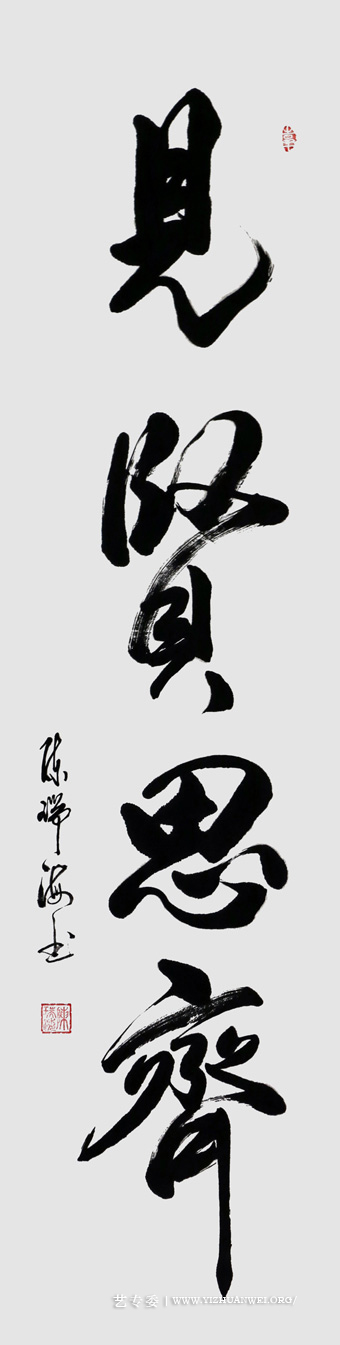 見賢思齊
陈瑞海书
艺专委 | WWW.YIZHUANWEI.ORG/